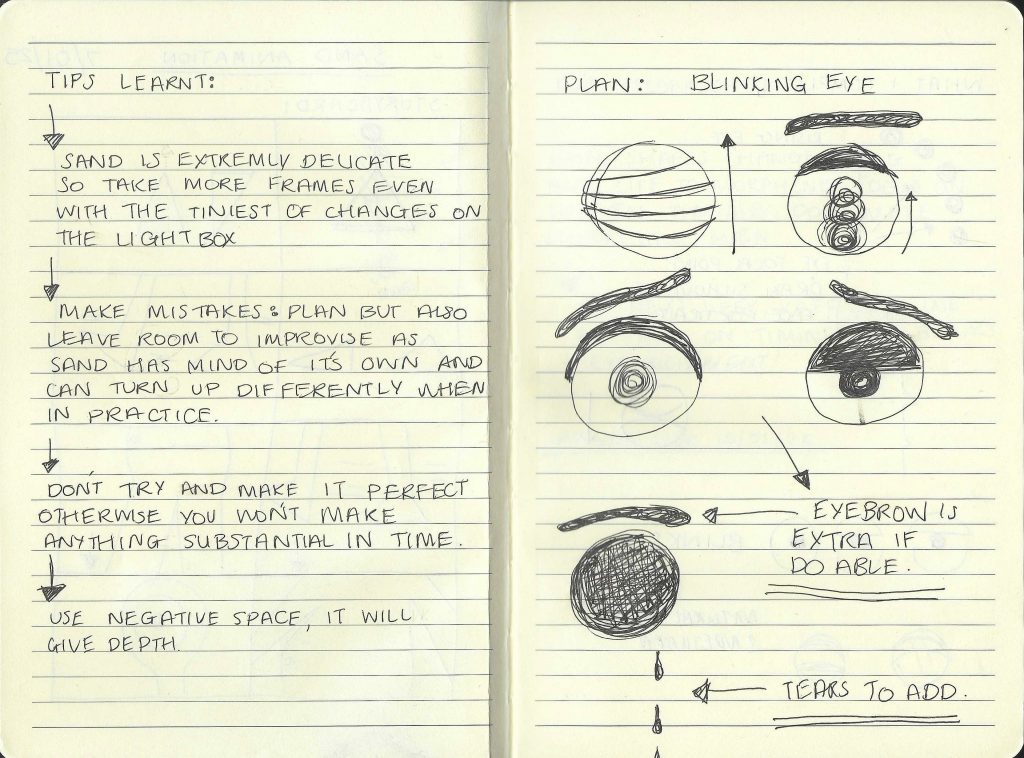 TIPS LEARNT:
SAND IS EXTREMLY DELICATE
SO TAKE MORE FRAMES EVEN
WITH THE TINIEST OF CHANGES ON
THE LIGHTBOX
MAKE MISTAKES: PLAN BUT ALSO
LEAVE ROOM TO IMPROVISE AS
SAND HAS MIND OF IT'S OWN AND
CAN TURN UP DIFFERENTLY WHEN
IN PRACTICE.
DON'T TRY AND MAKE IT PERFECT
OTHERWISE YOU WON'T MAKE
ANYTHING SUBSTANTIAL IN TIME.
USE NEGATIVE SPACE, IT WILL
GIVE DEPTH.
PLAN: BLINKING EYE
EYEBROW IS
EXTRA IF
DO ABLE.
TEARS TO ADD.